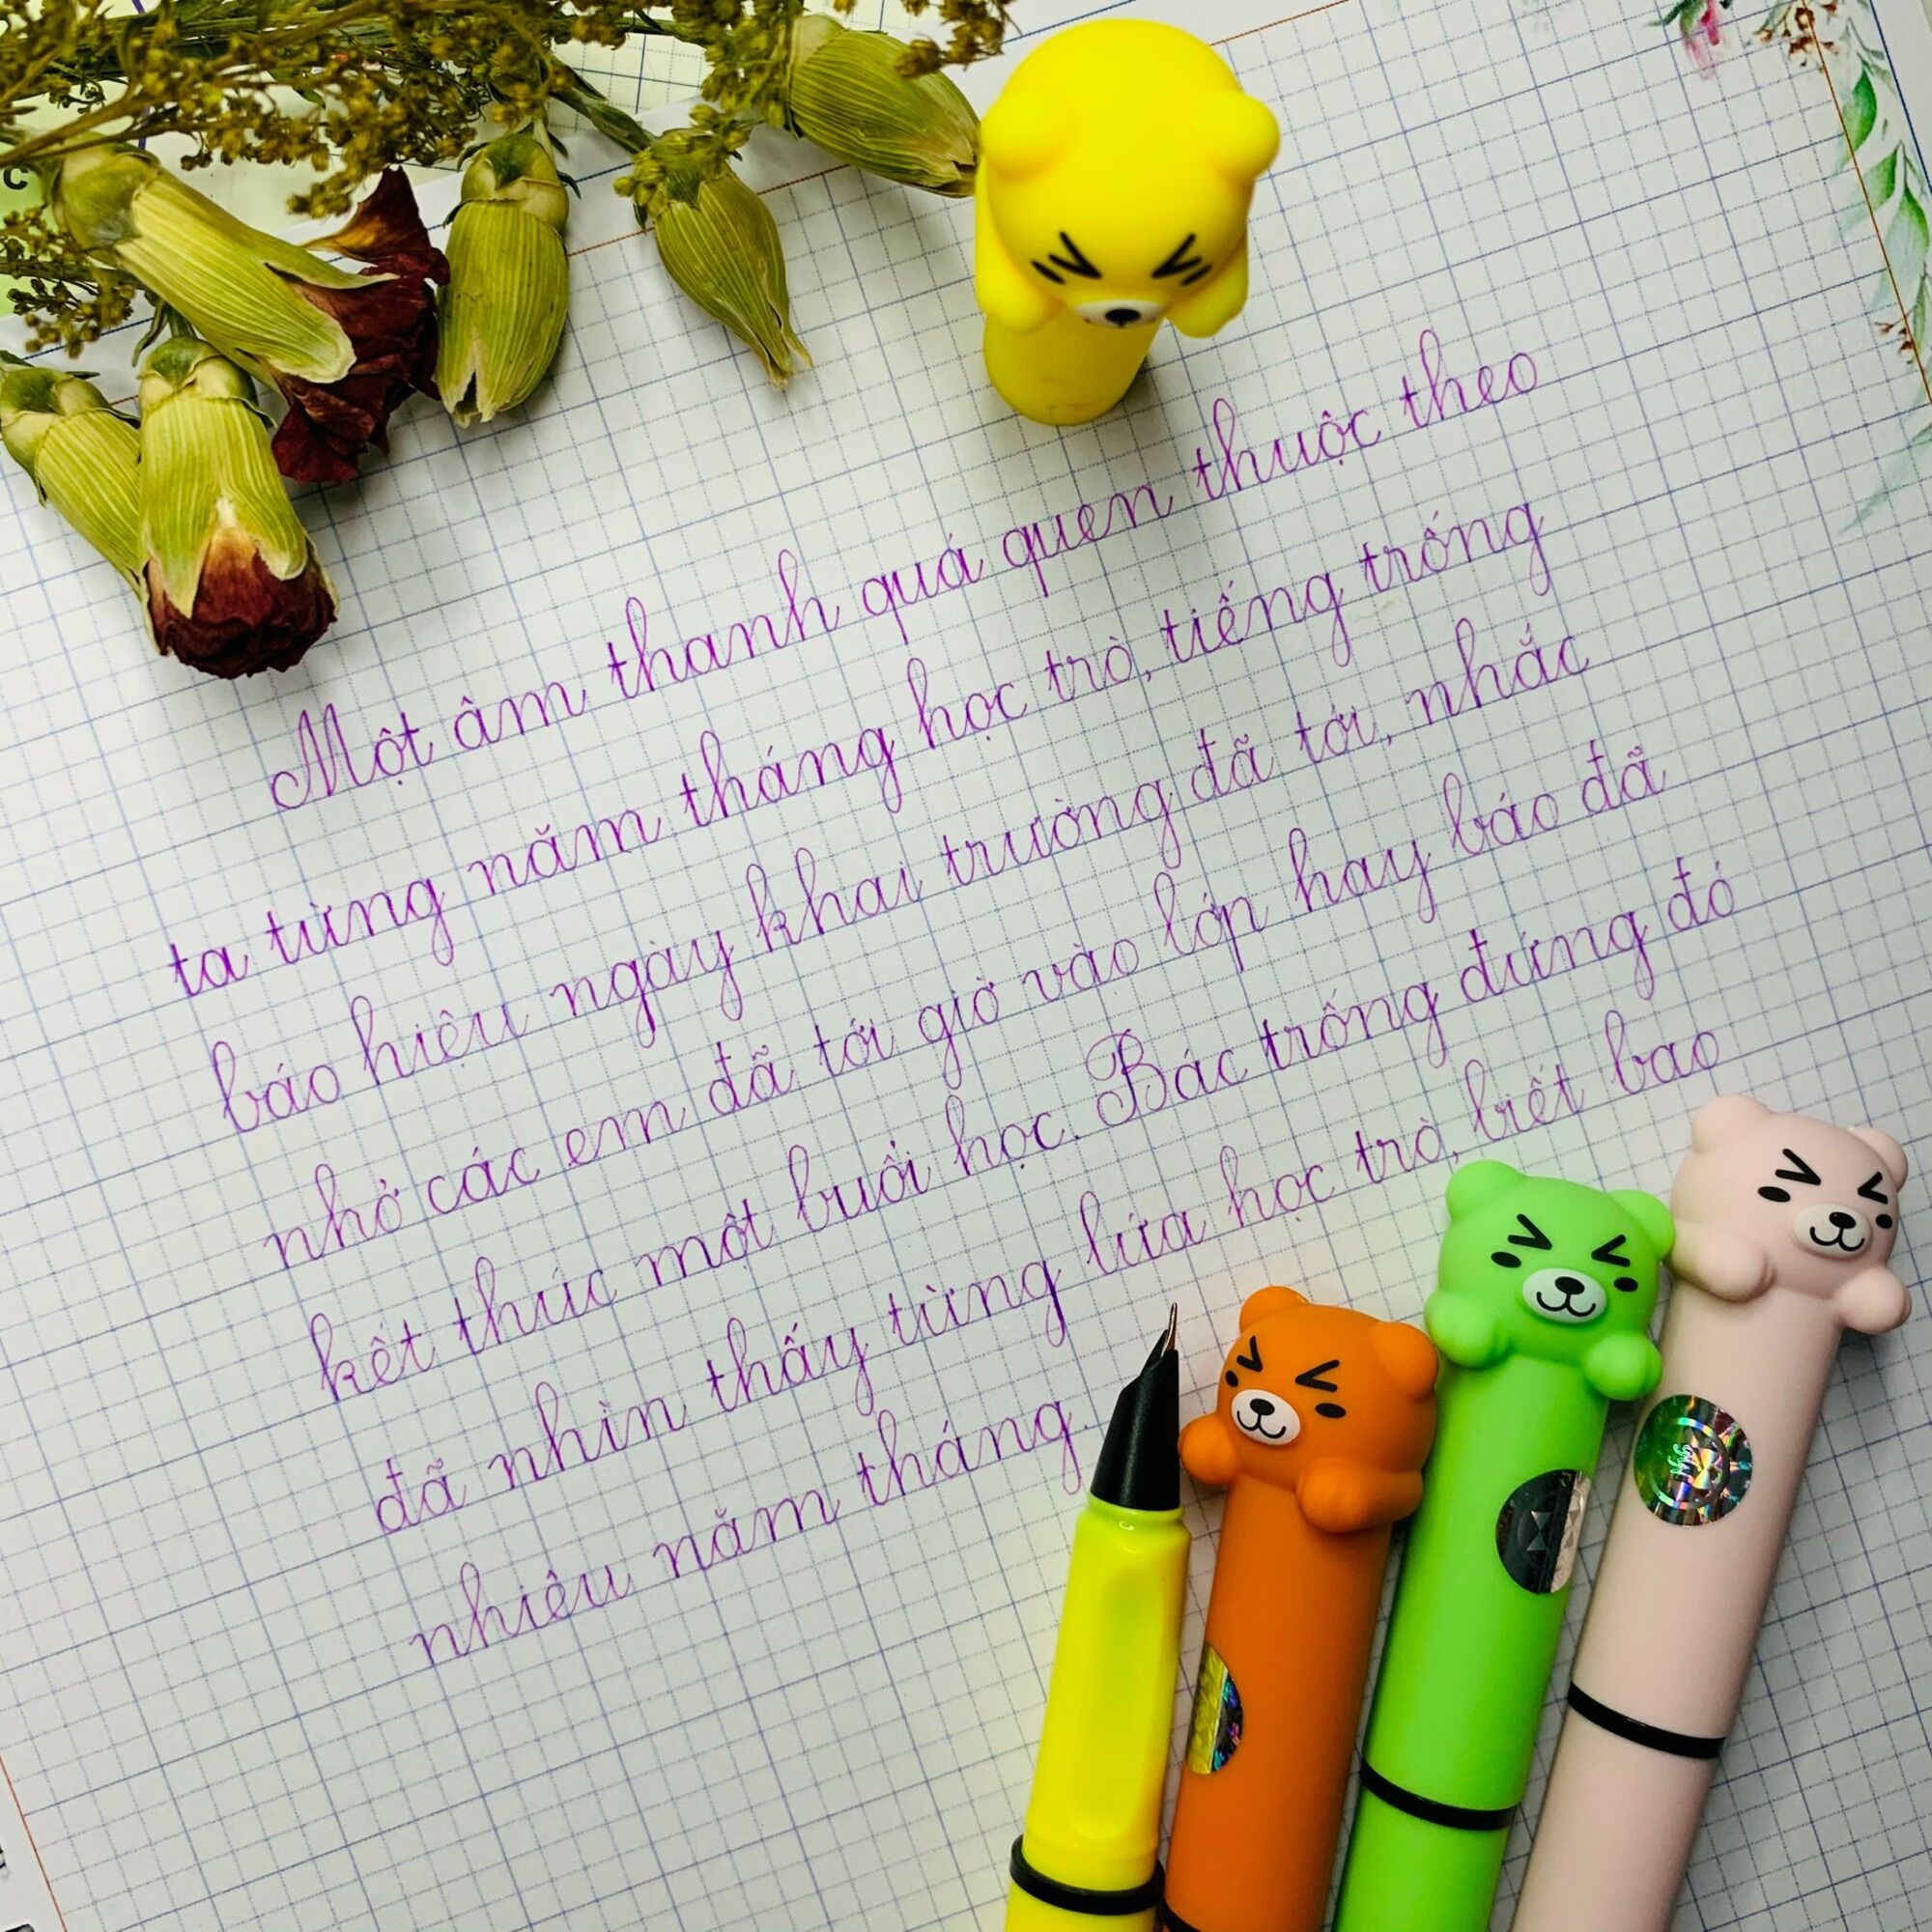 Một âm thanh quá quen thuộc theo
ta từng năm tháng học trò, tiếng trống
báo hiệu ngày khai trường đã tới, nhắc
nhở các em đã tới giờ vào lớp hay báo đã
kết thúc một buổi học. Bác trống đứng đó
đã nhìn thấy từng lứa học trò, biết bao
nhiêu năm tháng.
C